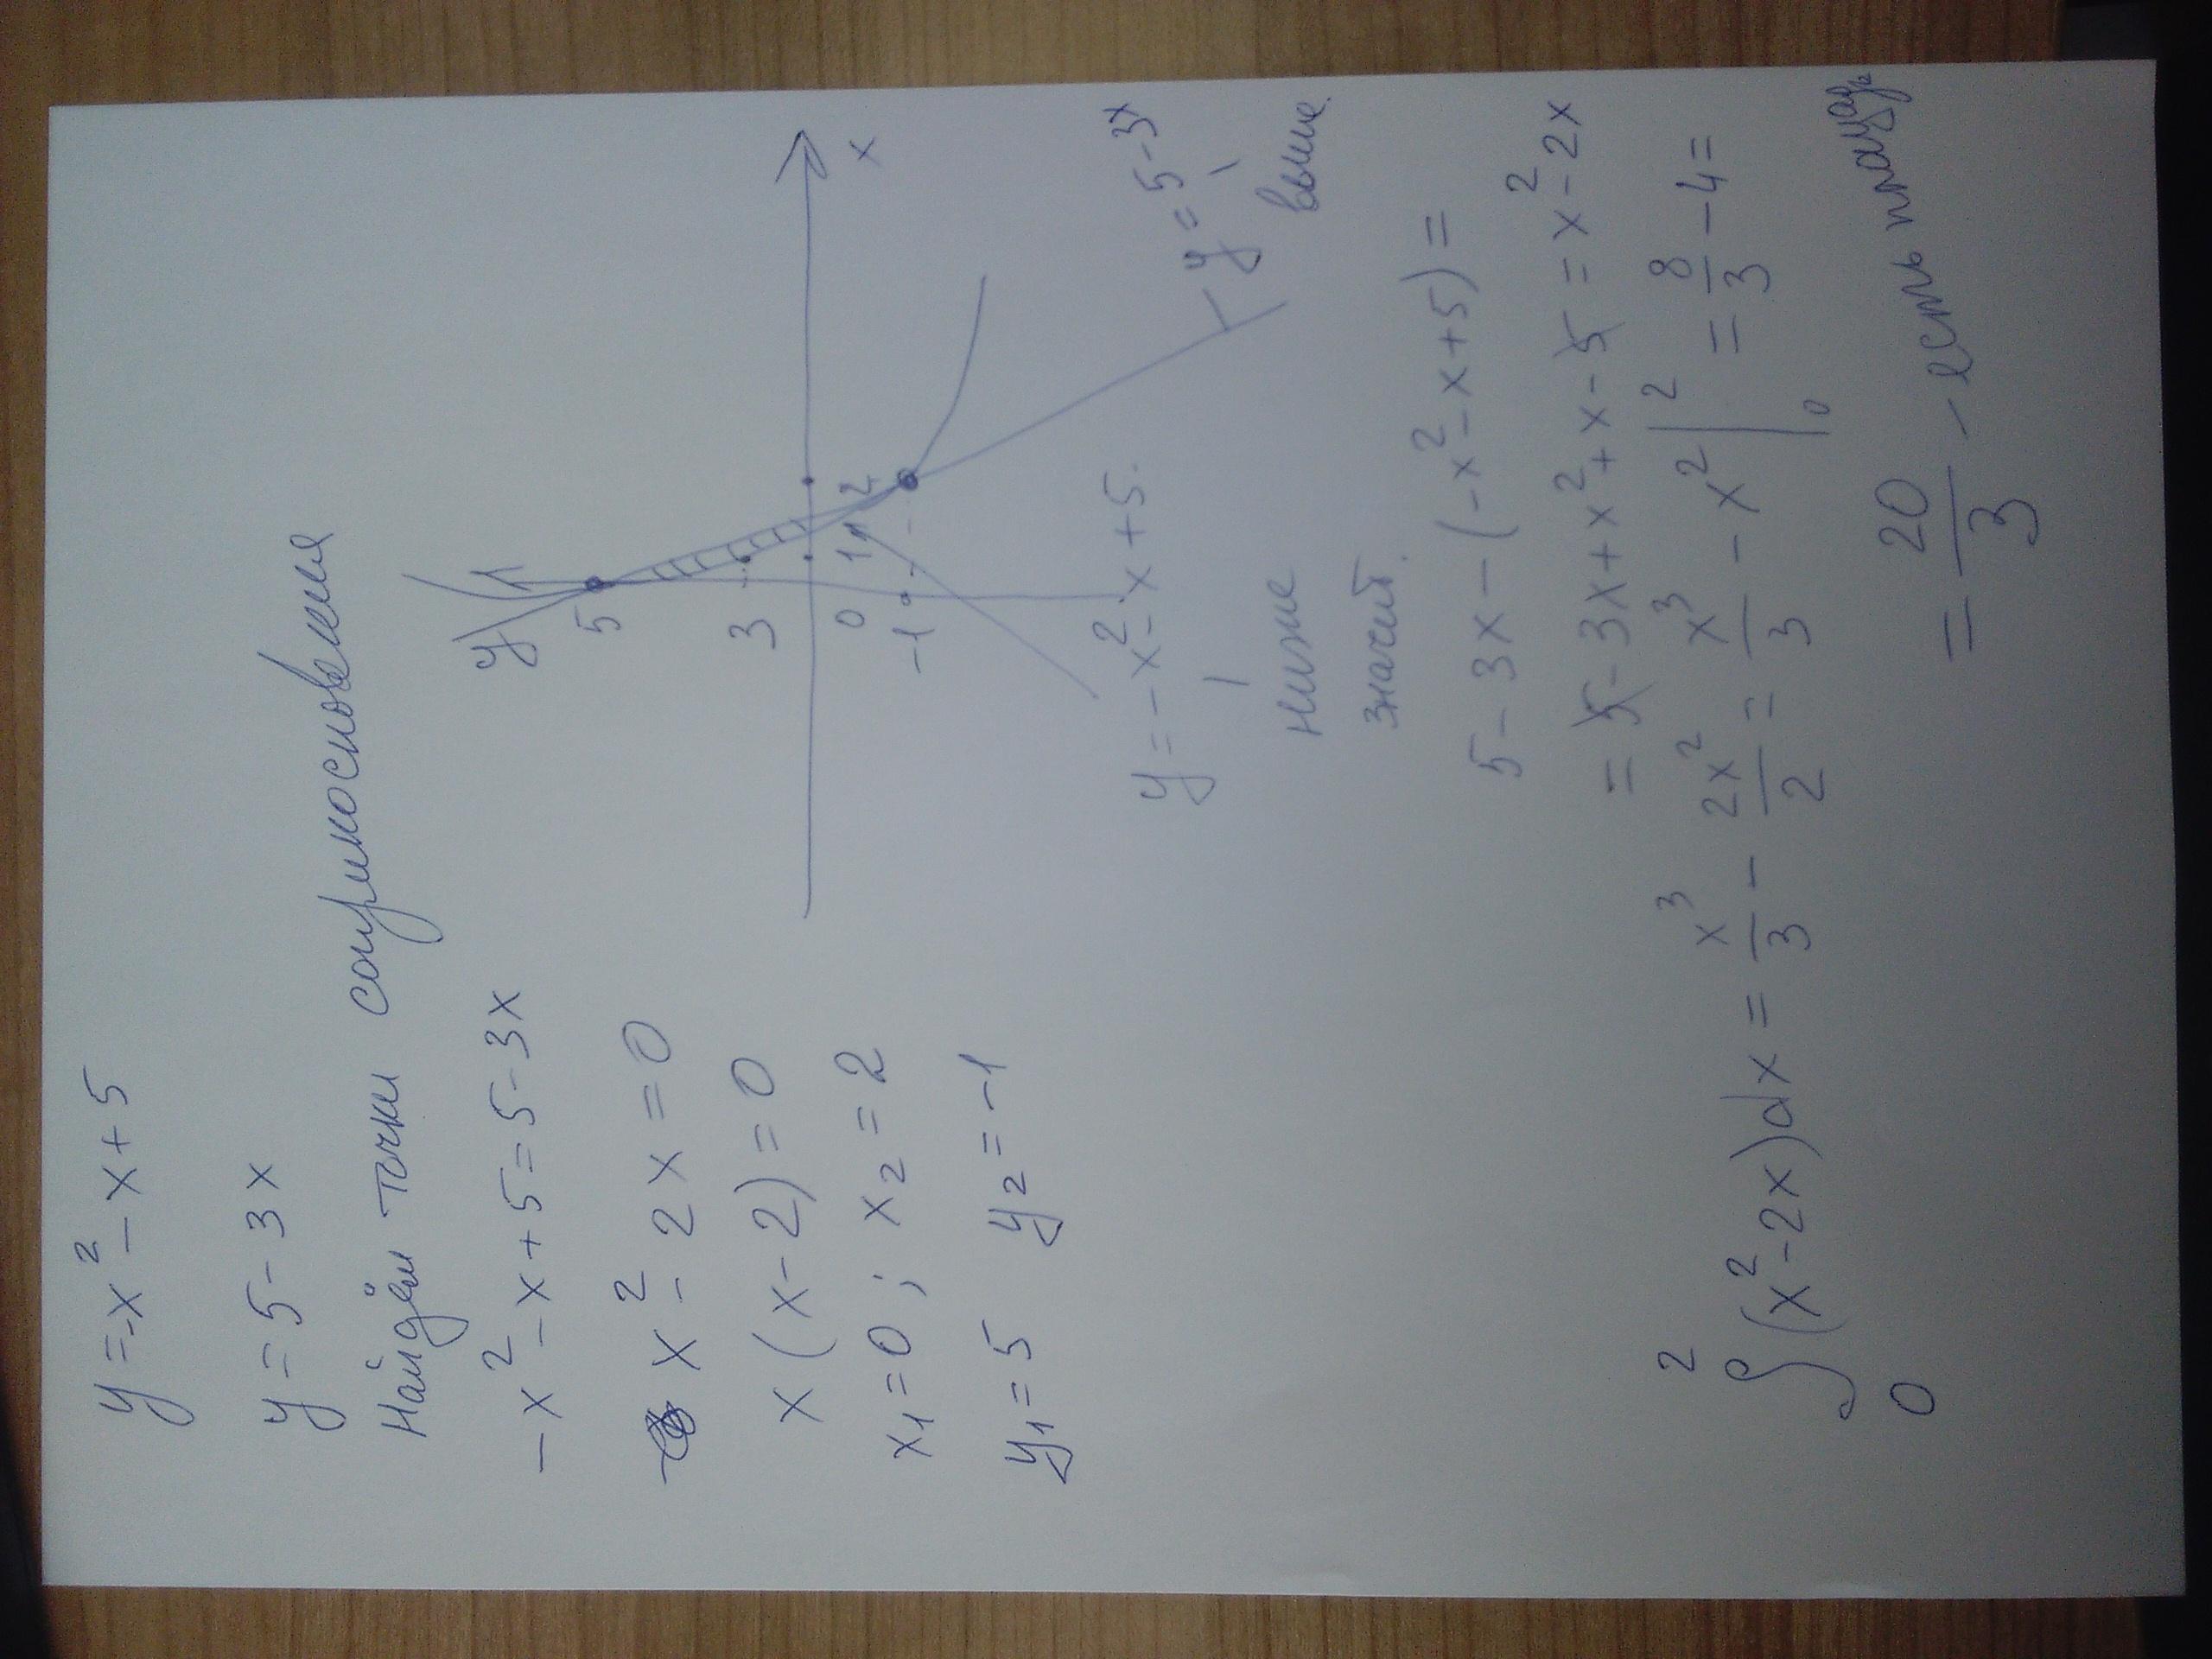 y=-x²-x+5
y=5-3x
Найдём точки соприкосновения
-x²-x+5=5-3x
x²-2x=0
x(x-2)=0
x₁=0; x₂=2
y₁=5 y₂=-1
y
5
3
0 1 2
x
-1
y=-x²-x+5.
ниже
y=5-3x
выше.
значит.
5-3x-(-x²-x+5)=
=5-3x+x²+x-5=x²-2x
∫₀²(x²-2x)dx=x³/3-2x²/2=x³/3-x²|₀²=8/3-4=
=20/3-есть площадь